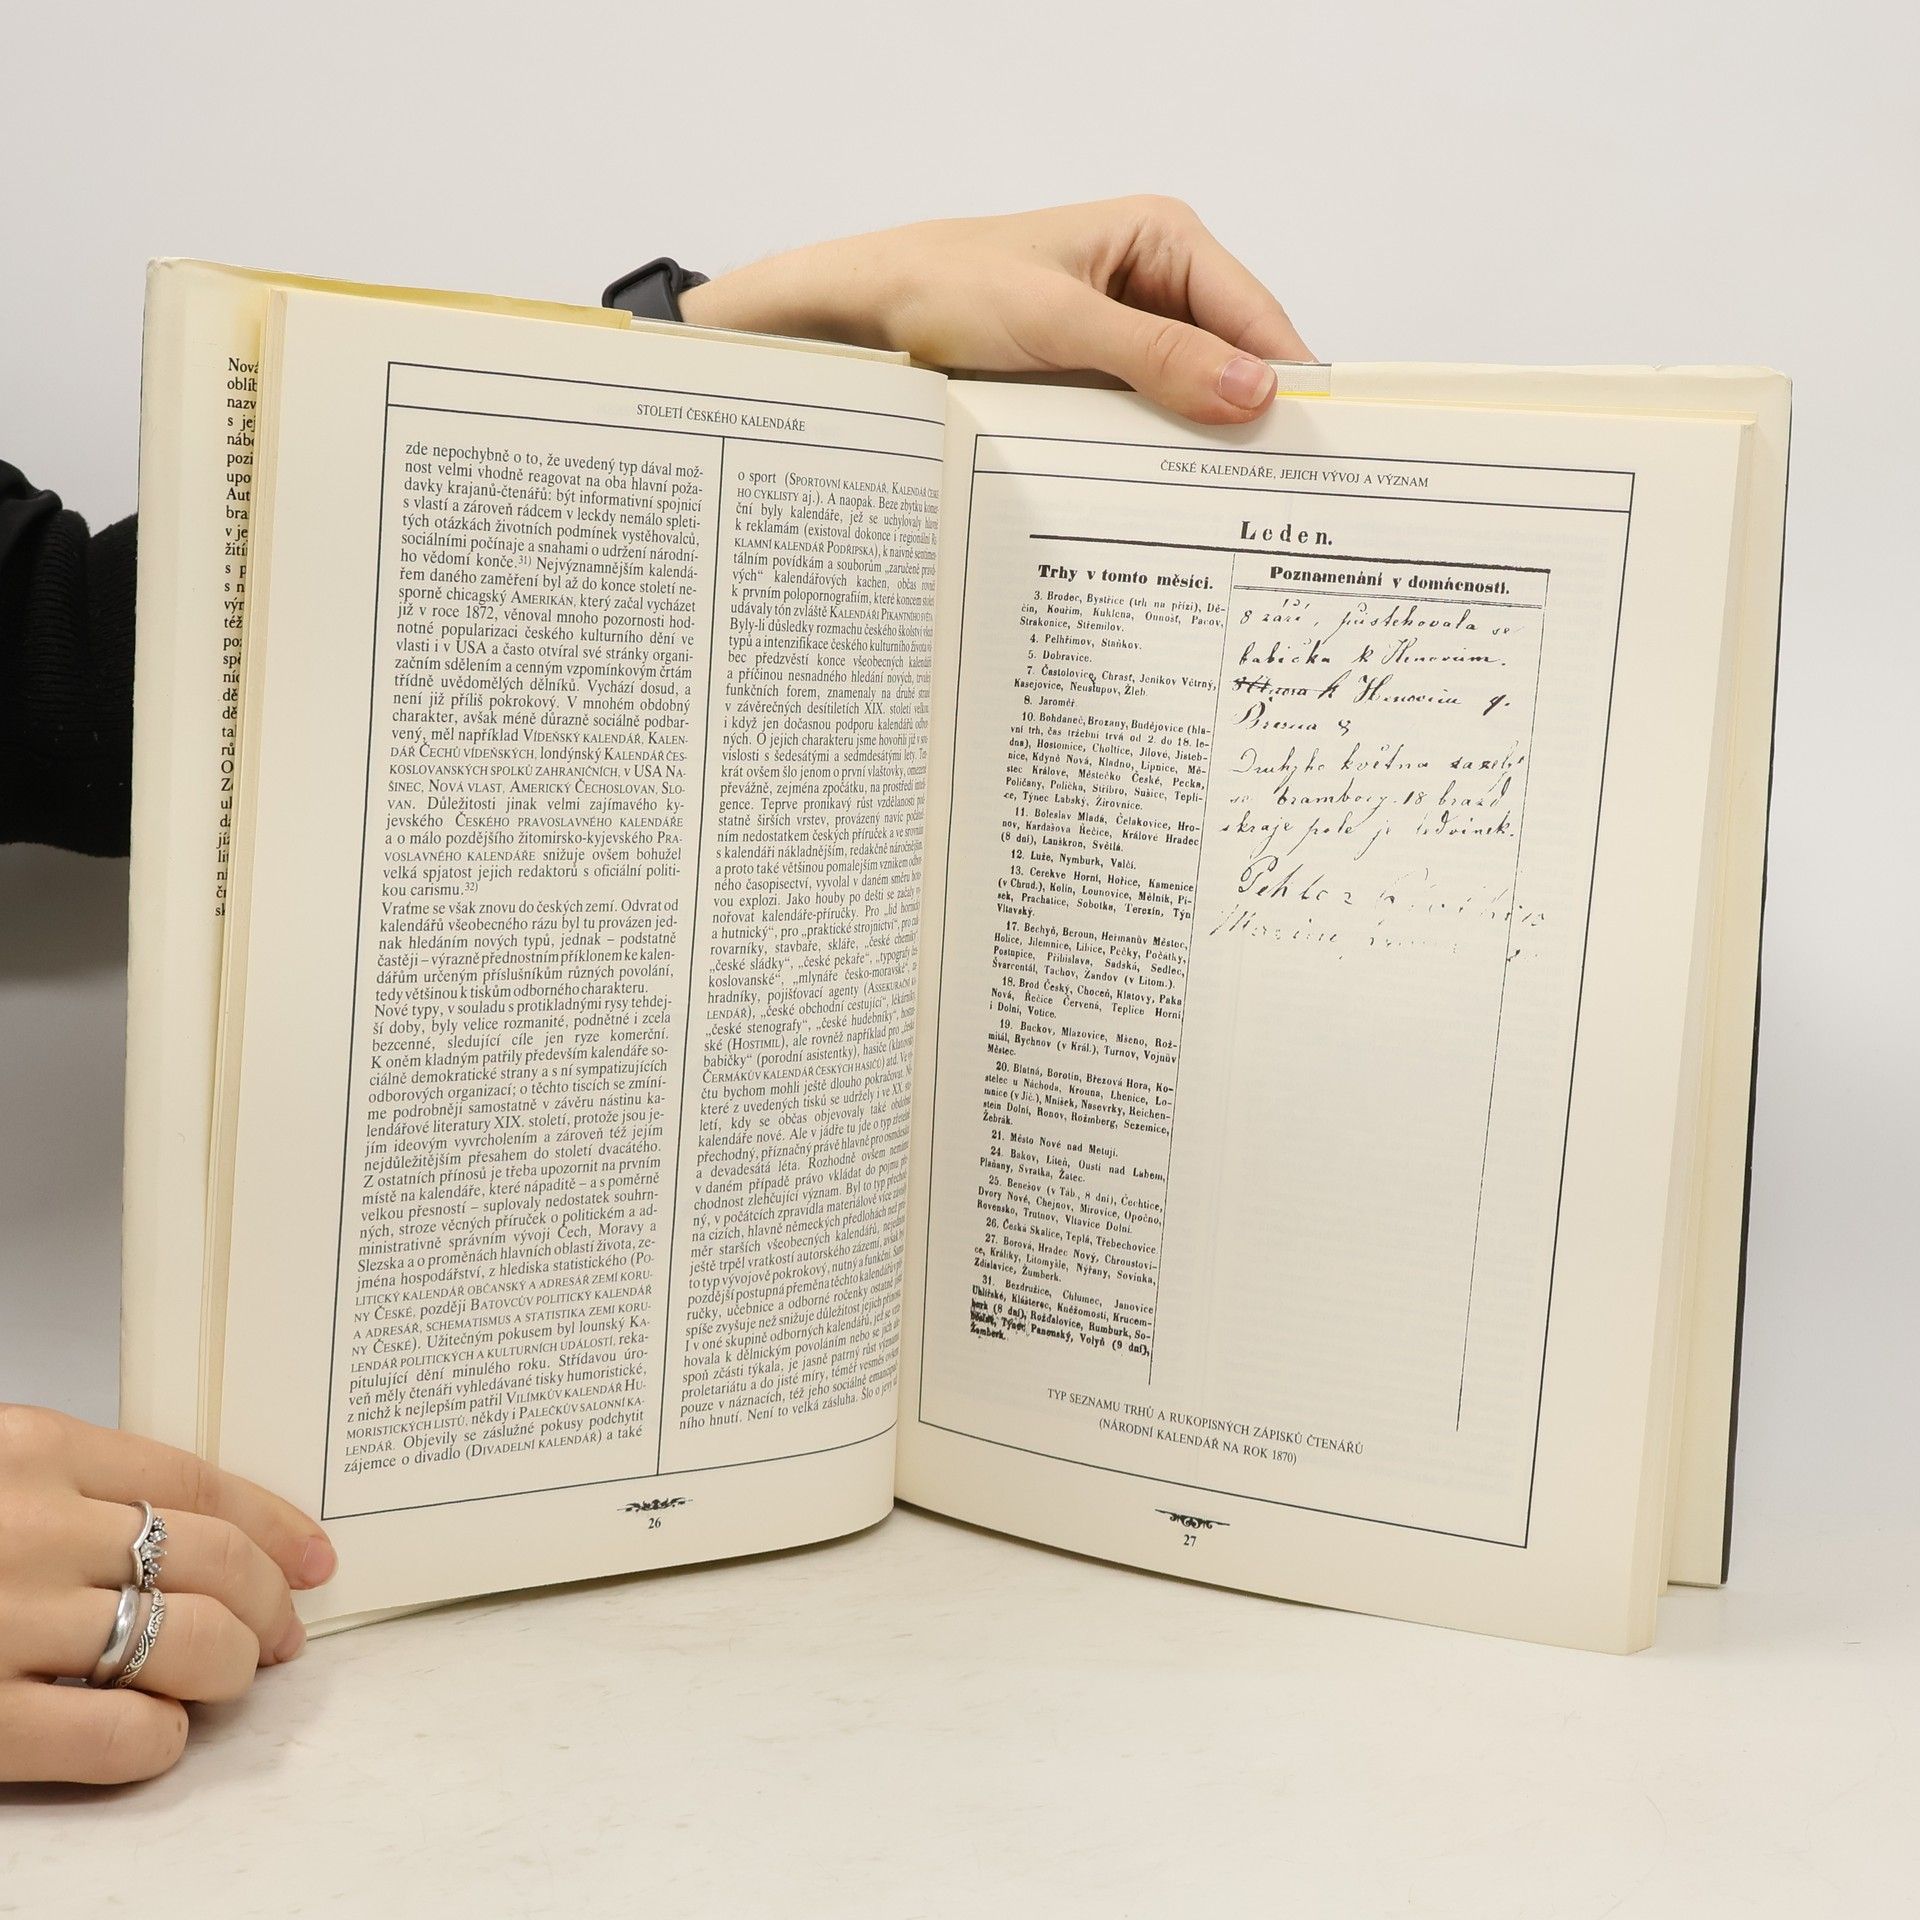 Nová
oblíb
nazv
s jej
nábo
pozi
upo
Aut
bra
v je
žití
s p
s n
výr
též
po
sp
nic
dě
dě
tal
rů
O
Ze
ul
da
jíz
lit
ni
čr
sk
STOLETÍ ČESKÉHO KALENDÁŘE
zde nepochybně o to, že uvedený typ dával mož-
nost velmi vhodně reagovat na oba hlavní poža-
davky krajanů-čtenářů: být informativní spojnicí
s vlastí a zároveň rádcem v leckdy nemálo spleti-
tých otázkách životních podmínek vystěhovalců,
sociálními počínaje a snahami o udržení národní-
ho vědomí konče.31) Nejvýznamnějším kalendá-
řem daného zaměření byl až do konce století ne-
sporně chicagský AMERIKÁN, který začal vycházet
již v roce 1872, věnoval mnoho pozornosti hod-
notné popularizaci českého kulturního dění ve
vlasti i v USA a často otvíral své stránky organi-
začním sdělením a cenným vzpomínkovým črtám
třídně uvědomělých dělníků. Vychází dosud, a
není již příliš pokrokový. V mnohém obdobný
charakter, avšak méně důrazně sociálně podbar-
vený, měl například VÍDEŇSKÝ KALENDÁŘ, KALEN-
DÁŘ ČECHŮ VÍDEŇSKÝCH, londýnský KALENDÁŘ ČES-
KOSLOVANSKÝCH SPOLKŮ ZAHRANIČNÍCH, v USA NA-
ŠINEC, NOVÁ VLAST, AMERICKÝ ČECHOSLOVAN, SLO-
VAN. Důležitosti jinak velmi zajímavého ky-
jevského ČESKÉHO PRAVOSLAVNÉHO KALENDÁŘE
a o málo pozdějšího žitomirsko-kyjevského PRA-
VOSLAVNÉHO KALENDÁŘE snižuje ovšem bohužel
velká spjatost jejich redaktorů s oficiální politi-
kou carismu.32)
Vraťme se však znovu do českých zemí. Odvrat od
kalendářů všeobecného rázu byl tu provázen jed-
nak hledáním nových typů, jednak – podstatně
častěji – výrazně přednostním příklonem ke kalen-
dářům určeným příslušníkům různých povolání,
tedy většinou k tiskům odborného charakteru.
Nové typy, v souladu s protikladnými rysy tehdej-
ší doby, byly velice rozmanité, podnětné i zcela
bezcenné, sledující cíle jen ryze komerční.
K oněm kladným patřily především kalendáře so-
ciálně demokratické strany a s ní sympatizujících
odborových organizací; o těchto tiscích se zmíní-
me podrobněji samostatně v závěru nástinu ka-
lendářové literatury XIX. století, protože jsou je-
jím ideovým vyvrcholením a zároveň též jejím
nejdůležitějším přesahem do století dvacátého.
Z ostatních přínosů je třeba upozornit na prvním
místě na kalendáře, které nápaditě – a s poměrně
velkou přesností – suplovaly nedostatek souhrn-
ných, stroze věcných příruček o politickém a ad-
ministrativně správním vývoji Čech, Moravy a
Slezska a o proměnách hlavních oblastí života, ze-
jména hospodářství, z hlediska statistického (PO-
LITICKÝ KALENDÁŘ OBČANSKÝ A ADRESÁŘ ZEMÍ KORU-
NY ČESKÉ, později BATOVCŮV POLITICKÝ KALENDÁŘ
A ADRESÁŘ, SCHEMATISMUS A STATISTIKA ZEMI KORU-
NY ČESKÉ). Užitečným pokusem byl lounský KA-
LENDÁŘ POLITICKÝCH A KULTURNÍCH UDÁLOSTÍ, reka-
pitulující dění minulého roku. Střídavou úro-
veň měly čtenáři vyhledávané tisky humoristické,
z nichž k nejlepším patřil VILÍMKŮV KALENDÁŘ HU-
MORISTICKÝCH LISTŮ, někdy i PALEČKŮV SALONNÍ KA-
LENDÁŘ. Objevily se záslužné pokusy podchytit
zájemce o divadlo (DIVADELNÍ KALENDÁŘ) a také
o sport (SPORTOVNÍ KALENDÁŘ, KALENDÁŘ ČESKÉ-
HO CYKLISTY aj.). A naopak. Beze zbytku komer-
ční byly kalendáře, jež se uchylovaly hlavně
k reklamám (existoval dokonce i regionální RE-
KLAMNÍ KALENDÁŘ PODŘIPSKA), k naivně sentimen-
tálním povídkám a souborům „zaručeně pravdi-
vých“ kalendářových kachen, občas rovněž
k prvním polopornografiím, které koncem století
udávaly tón zvláště KALENDÁŘI PIKANTNÍHO SVĚTA.
Byly-li důsledky rozmachu českého školství všech
typů a intenzifikace českého kulturního života vů-
bec předzvěstí konce všeobecných kalendářů
a příčinou nesnadného hledání nových, trvalejších
funkčních forem, znamenaly na druhé straně
v závěrečných desítiletích XIX. století velkou,
i když jen dočasnou podporu kalendářů odbor-
ných. O jejich charakteru jsme hovořili již v sou-
vislosti s šedesátými a sedmdesátými lety. Ten-
krát ovšem šlo jenom o první vlaštovky, omezené
převážně, zejména zpočátku, na prostředí inteli-
gence. Teprve pronikavý růst vzdělanosti pod-
statně širších vrstev, provázený navíc počáteč-
ním nedostatkem českých příruček a ve srovnání
s kalendáři nákladnějším, redakčně náročnějším,
a proto také většinou pomalejším vznikem odbor-
ného časopisectví, vyvolal v daném směru horo-
vou explozi. Jako houby po dešti se začaly vy-
nořovat kalendáře-příručky. Pro „lid hornický
a hutnický“, pro „praktické strojnictví“, pro cuk-
rovarníky, stavbaře, skláře, „české chemiky“,
„české sládky“, „české pekaře“, „typografy čes-
koslovanské“, „mlynáře česko-moravské“, za-
hradníky, pojišťovací agenty (ASSEKURAČNÍ KA-
LENDÁŘ), „české obchodní cestující“, lékárníky,
„české stenografy“, „české hudebníky“, hostin-
ské (HOSTIMIL), ale rovněž například pro „české
babičky“ (porodní asistentky), hasiče (klatovský
ČERMÁKŮV KALENDÁŘ ČESKÝCH HASIČŮ) atd. Ve vý-
čtu bychom mohli ještě dlouho pokračovat. Ně-
které z uvedených tisků se udržely i ve XX. sto-
letí, kdy se občas objevovaly také obdobné
kalendáře nové. Ale v jádře tu jde o typ zřetelně
přechodný, příznačný právě hlavně pro osmdesátá
a devadesátá léta. Rozhodně ovšem nemáme
v daném případě právo vkládat do pojmu pře-
chodnost zlehčující význam. Byl to typ přechod-
ný, v počátcích zpravidla materiálově více závislý
na cizích, hlavně německých předlohách než prů-
měr starších všeobecných kalendářů, nejednou
ještě trpěl vratkostí autorského zázemí, avšak byl
to typ vývojově pokrokový, nutný a funkční. Sama
pozdější postupná přeměna těchto kalendářů v pří-
ručky, učebnice a odborné ročenky ostatně jistě
spíše zvyšuje než snižuje důležitost jejich přínosu.
I v oné skupině odborných kalendářů, jež se vzta-
hovala k dělnickým povoláním nebo se jich ale-
spoň zčásti týkala, je jasně patrný růst významu
proletariátu a do jisté míry, téměř vesměs ovšem
pouze v náznacích, též jeho sociálně emancipač-
ního hnutí. Není to velká zásluha. Šlo o jevy už
26
ČESKÉ KALENDÁŘE, JEJICH VÝVOJ A VÝZNAM
Leden.
Trhy v tomto měsíci.
3. Brodec, Bystřice (trh na přízi), Dě-
čín, Kouřim, Kuklena, Onnošť, Pacov,
Strakonice, Střemilov.
4. Pelhřimov, Staňkov.
5. Dobravice.
7. Častolovice, Chrast, Jeníkov Větrný,
Kasejovice, Neustupov, Žleb.
8. Jaroměř.
10. Bohdaneč, Brozany, Budějovice (hla-
vní trh, čas tržební trvá od 2. do 18. le-
dna), Hostomice, Choltice, Jílové, Jisteb-
nice, Kdyně Nová, Kladno, Lipnice, Mě-
stec Králove, Městečko České, Pecka,
Poličany, Polička, Stříbro, Sušice, Tepli-
ce, Týnec Labský, Žirovnice.
11. Boleslav Mladá, Čelakovice, Hro-
nov, Kardašova Řečice, Králové Hradec
(8 dní), Lanškron, Světlá.
12. Luže, Nymburk, Valčí.
13. Cerekve Horní, Hořice, Kamenice
(v Chrud.), Kolín, Lounovice, Mělník, Pí-
sek, Prachatice, Sobotka, Terezín, Týn
Vltavský.
17. Bechyň, Beroun, Heřmanův Městec,
Holice, Jilemnice, Libice, Pečky, Počátky,
Postupice, Přibislava, Sadská, Sedlec,
Švarcentál, Tachov, Žandov (v Litom.).
18. Brod Český, Choceň, Klatovy, Paka
Nová, Řečice Červená, Teplice Horní
i Dolní, Votice.
19. Buckov, Mlazovice, Mšeno, Rož-
mitál, Rychnov (v Král.), Turnov, Vojnův
Městec.
20. Blatná, Borotín, Březová Hora, Ko-
stelec u Náchoda, Krouna, Lhenice, Lo-
mnice (v Jič.), Mníšek, Nasevrky, Reichen-
stein Dolní, Ronov, Rožmberg, Sezemice,
Žebrák.
21. Město Nové nad Metují.
24. Bakov, Liteň, Oustí nad Labem,
Plaňany, Svratka, Žatec.
25. Benešov (v Táb., 8 dní), Čechtice,
Dvory Nové, Chejnov, Mirovice, Opočno,
Rovensko, Trutnov, Vltavice Dolní.
26. Česká Skalice, Teplá, Třebechovice.
27. Borová, Hradec Nový, Chroustovi-
ce, Králíky, Litomyšle, Nýřany, Sovinka,
Zdislavice, Žumberk.
31. Bezdružice, Chlumec, Janovice
Uhlířské, Klášterec, Kněžomosti, Krucem-
burk (8 dní), Rožďalovice, Rumburk, So-
běslav, Týnec Panenský, Volyň (9 dní),
Žumberk.
Poznamenání v domácnosti.
8 září, přistehovala se
babička k Henovům.
k Henovům
Března
Druhýho května sazely
se brambory. 18 brázd
skraje pole je ledvinek.
TYP SEZNAMU TRHŮ A RUKOPISNÝCH ZÁPISKŮ ČTENÁŘŮ
(NÁRODNÍ KALENDÁŘ NA ROK 1870)
27